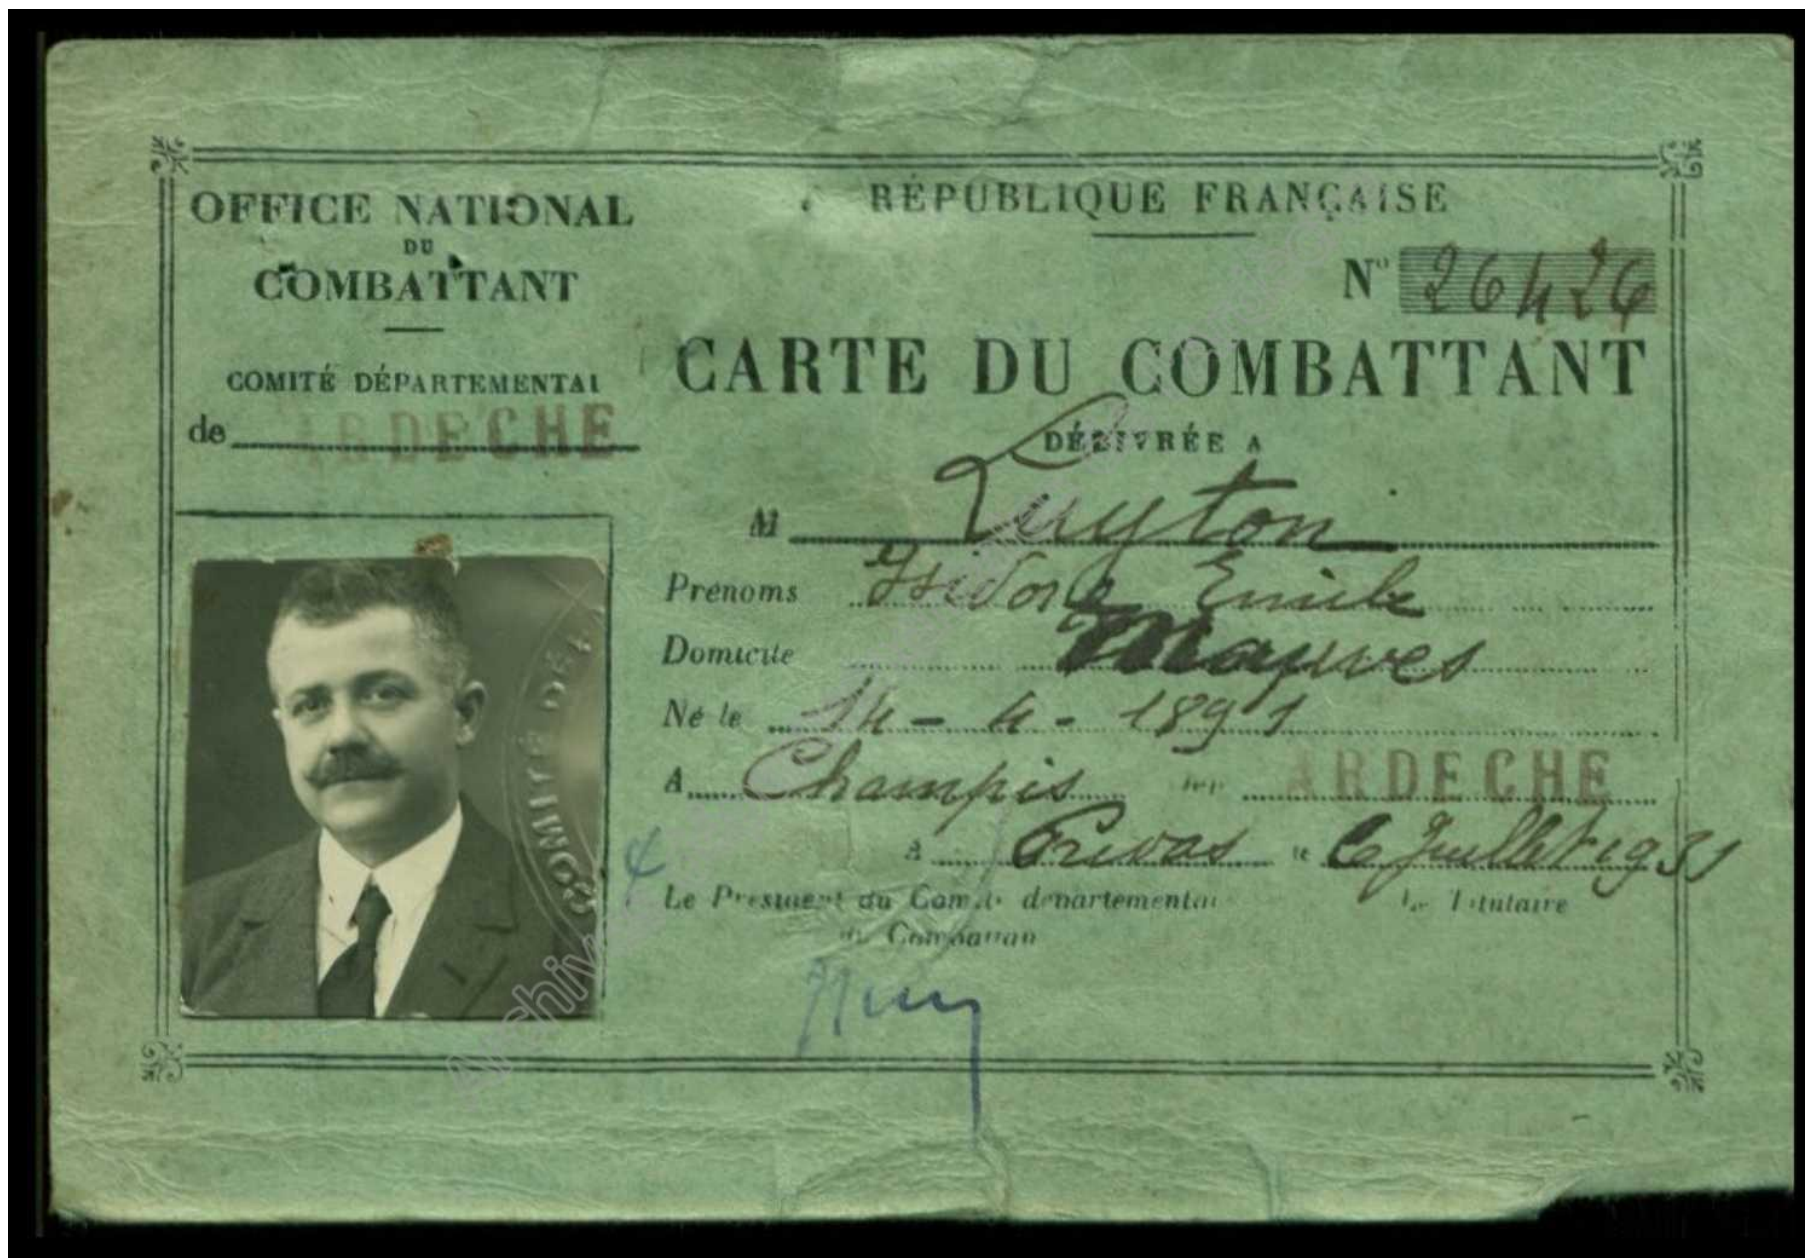 OFFICE NATIONAL
DU
COMBATTANT
COMITÉ DÉPARTEMENTAL
de ARDECHE
RÉPUBLIQUE FRANÇAISE
N° 26426
CARTE DU COMBATTANT
DÉLIVRÉE A
M Luyton
Prénoms Isidore Emile
Domicile Mauves
Né le 14-4-1891
A Champis dép ARDECHE
A Privas le 6 Juillet 1931
Le Président du Comité départemental
du Combattant
Le Titulaire
COMITÉ DE
Archives